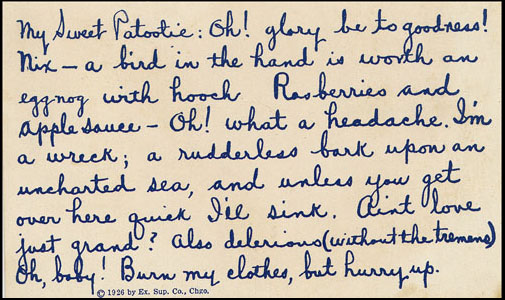 My Sweet Patootie: Oh! glory be to goodness!
Nix – a bird in the hand is worth an
eggnog with hooch Rasberries and
applesauce – Oh! what a headache. I'm
a wreck; a rudderless bark upon an
uncharted sea, and unless you get
over here quick I'll sink. Aint love
just grand? Also delerious (without the tremens)
Oh, baby! Burn my clothes, but hurry up.
© 1926 by Ex. Sup. Co., Chgo.